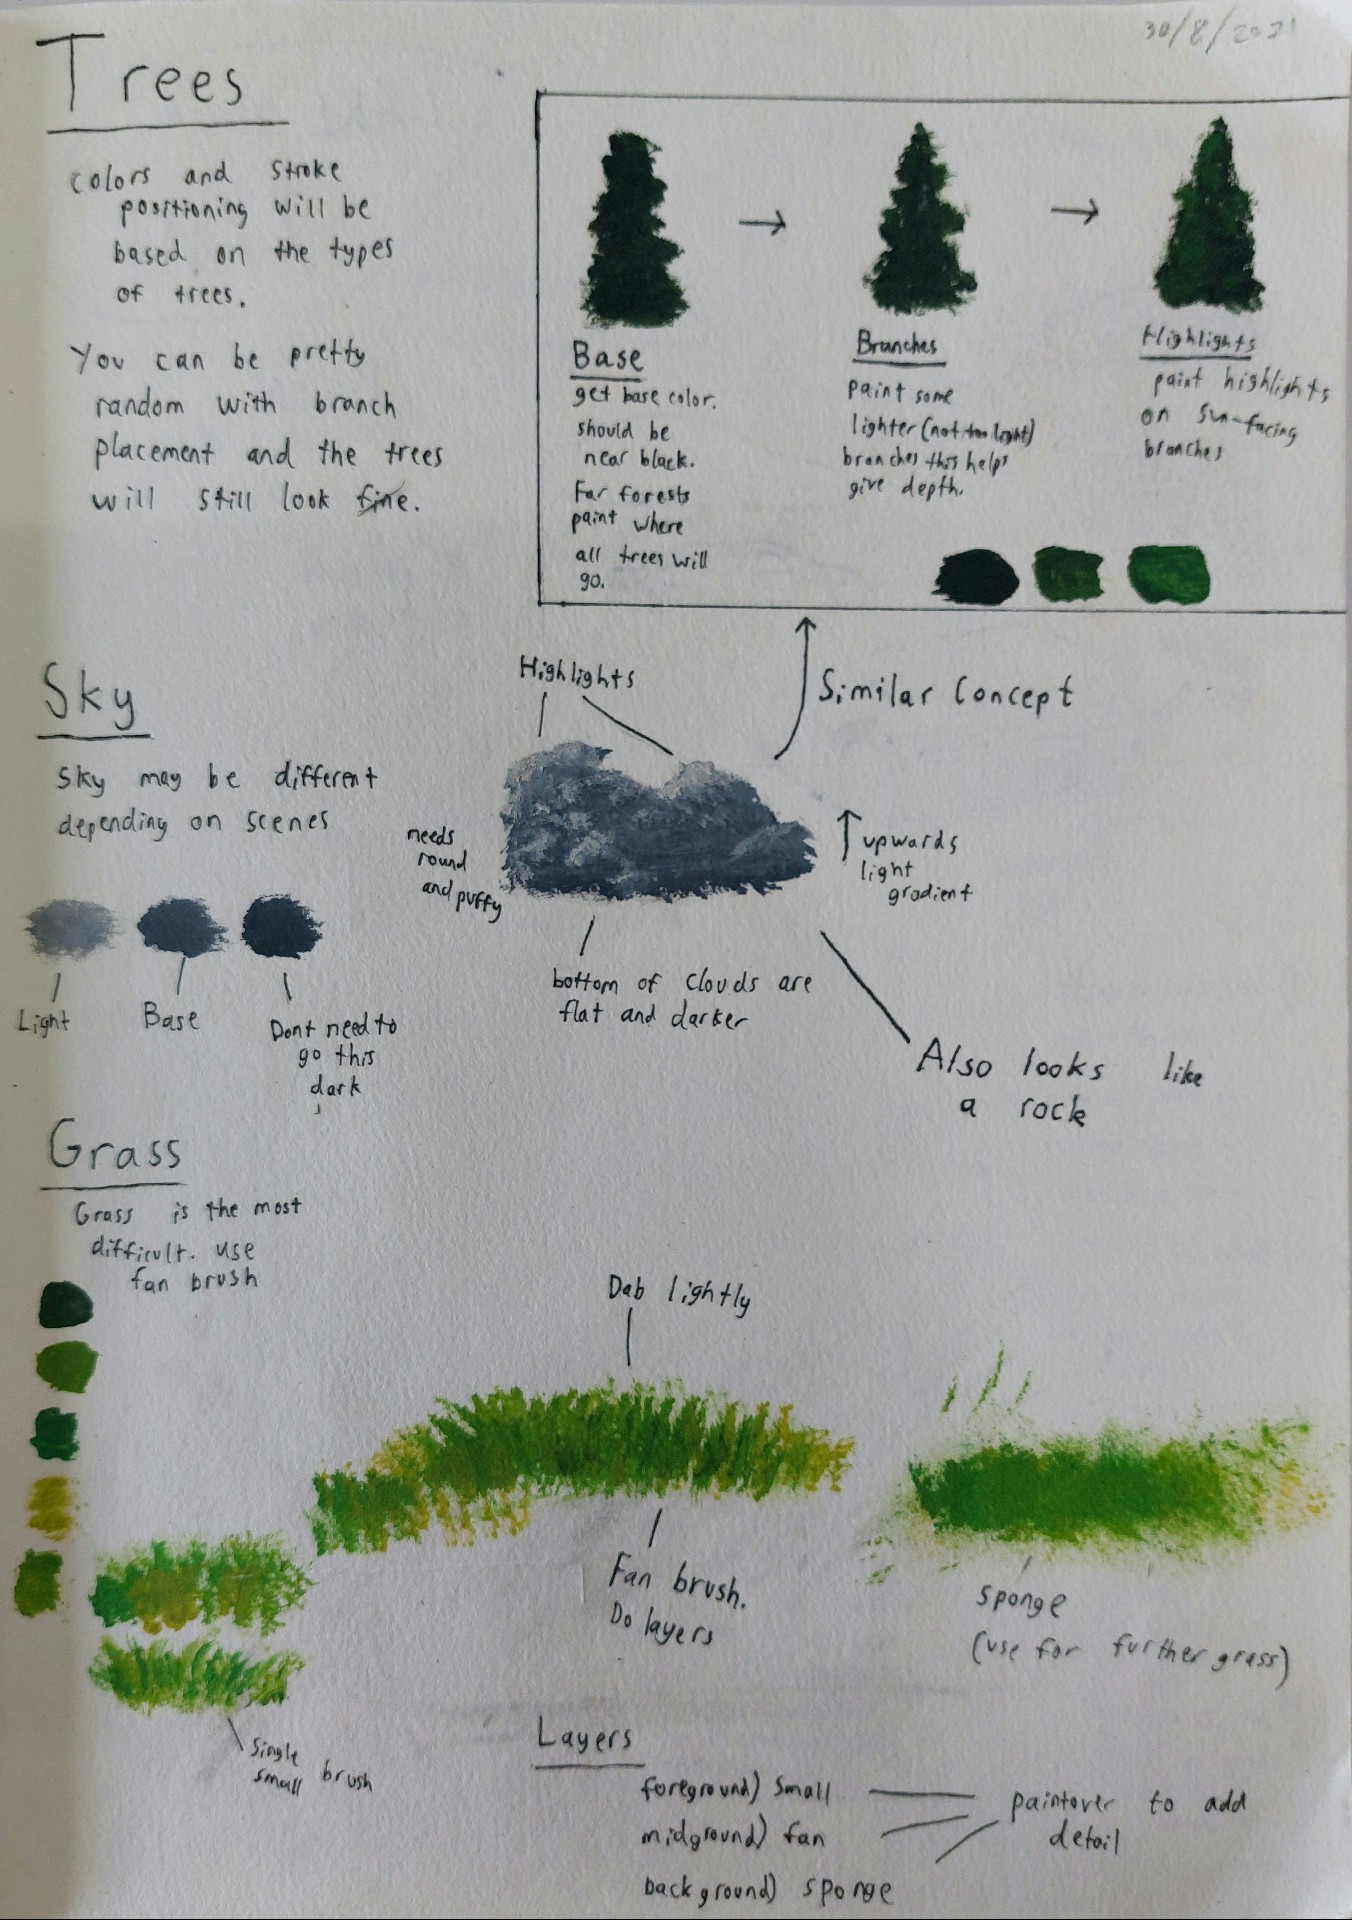 30/8/2021
Trees
colors and stroke
positioning will be
based on the types
of trees.
You can be pretty
random with branch
placement and the trees
will still look fine.
Base
get base color.
should be
near black.
Far forests
paint where
all trees will
go.
Branches
paint some
lighter (not too light)
branches this helps
give depth.
Highlights
paint highlights
on sun-facing
branches
Similar Concept
Sky
Sky may be different
depending on scenes
Light
Base
Dont need to
go this
dark
Highlights
needs
round
and puffy
upwards
light
gradient
bottom of clouds are
flat and darker
Also looks like
a rock
Grass
Grass is the most
difficult. use
fan brush
Dab lightly
Fan brush.
Do layers
sponge
(use for further grass)
Single
small brush
Layers
foreground) small
midground) fan
background) sponge
paintover to add
detail